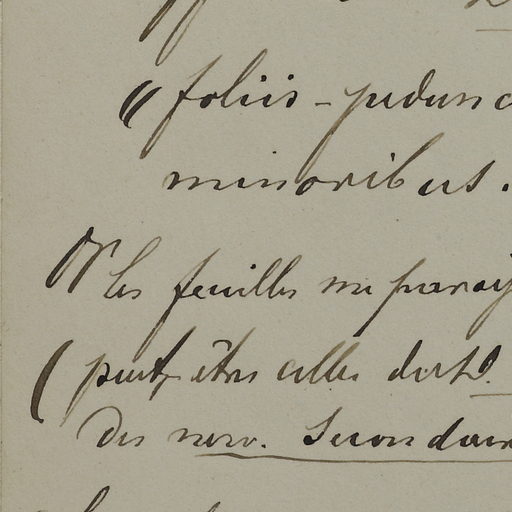 « foliis - pedunc
minoribus.
Or les feuilles me paraij
( peut être celles du
des nerv. Secondair